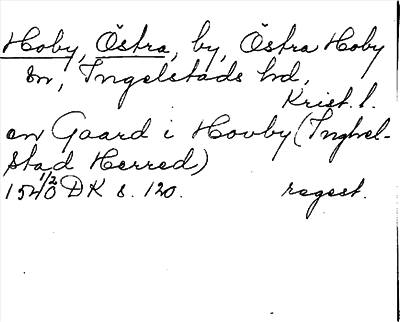 Hoby, Östra, by, Östra Hoby
sn, Ingelstads hd,
Krist. l.
en Gaard i Houby (Inghel-
stad Herred)
1540 1/2 DK s. 120. regest.